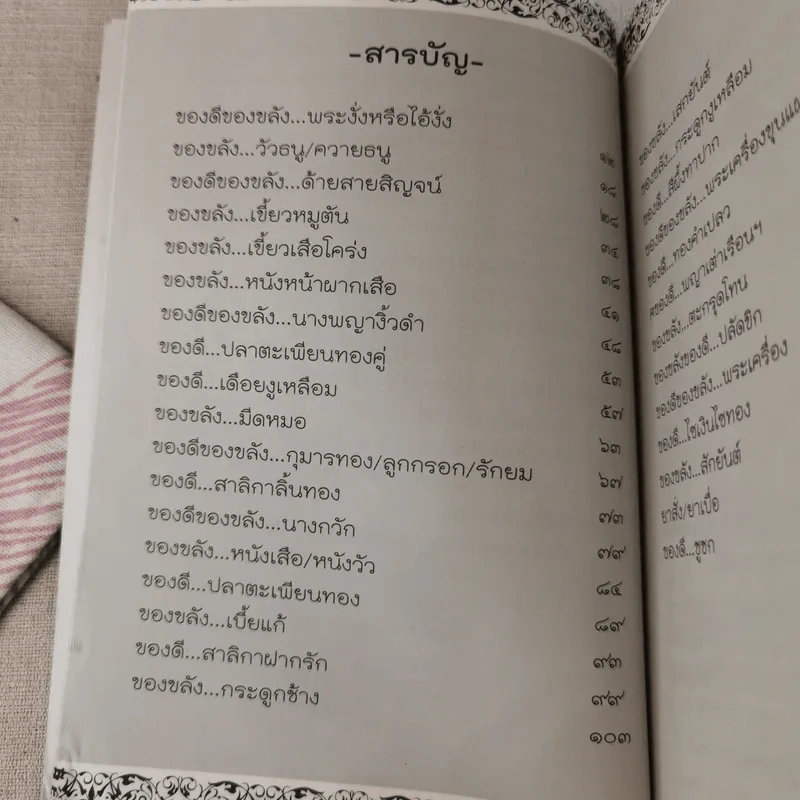 -สารบัญ-
ของดีของขลัง...พระงั่งหรือไอ้งั่ง ๑๒
ของขลัง...วัวธนู/ควายธนู ๑๘
ของดีของขลัง...ด้ายสายสิญจน์ ๒๘
ของขลัง...เขี้ยวหมูตัน ๓๔
ของขลัง...เขี้ยวเสือโคร่ง ๓๘
ของขลัง...หนังหน้าผากเสือ ๔๑
ของดีของขลัง...นางพญางิ้วดำ ๔๘
ของดี...ปลาตะเพียนทองคู่ ๕๓
ของดี...เดือยงูเหลือม ๕๗
ของขลัง...มีดหมอ ๖๓
ของดีของขลัง...กุมารทอง/ลูกกรอก/รักยม ๖๗
ของดี...สาลิกาลิ้นทอง ๗๓
ของดีของขลัง...นางกวัก ๗๙
ของขลัง...หนังเสือ/หนังวัว ๘๔
ของดี...ปลาตะเพียนทอง ๘๙
ของขลัง...เบี้ยแก้ ๙๓
ของดี...สาลิกาฝากรัก ๙๙
ของขลัง...กระดูกช้าง ๑๐๓
ของขลัง...เสกยันต์
ของขลัง...กระดูกงูเหลือม
ของดี...สีผึ้งทาปาก
ของดีของขลัง...พระเครื่องขุนแผ
ของดี...ทองคำเปลว
ของดี...พญาเต่าเรือนฯ
ของขลัง...ตะกรุดโทน
ของขลังของดี...ปลัดขิก
ของดีของขลัง...พระเครื่อง
ของดี...ไซเงินไซทอง
ของขลัง...สักยันต์
ยาสั่ง/ยาเบื่อ
ของดี...ชูชก